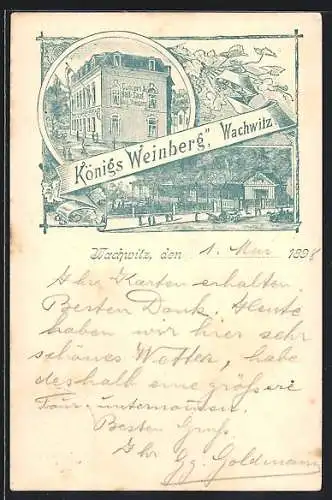 Königs Weinberg", Wachwitz.
Wachwitz, den 1. Mai 1898
Ihr Karten erhalten.
Besten Dank. Heute
haben wir hier sehr
schönes Wetter, habe
deshalb eine größere
Tour unternomen.
Besten Gruß
Ihr Gg. Goldmann